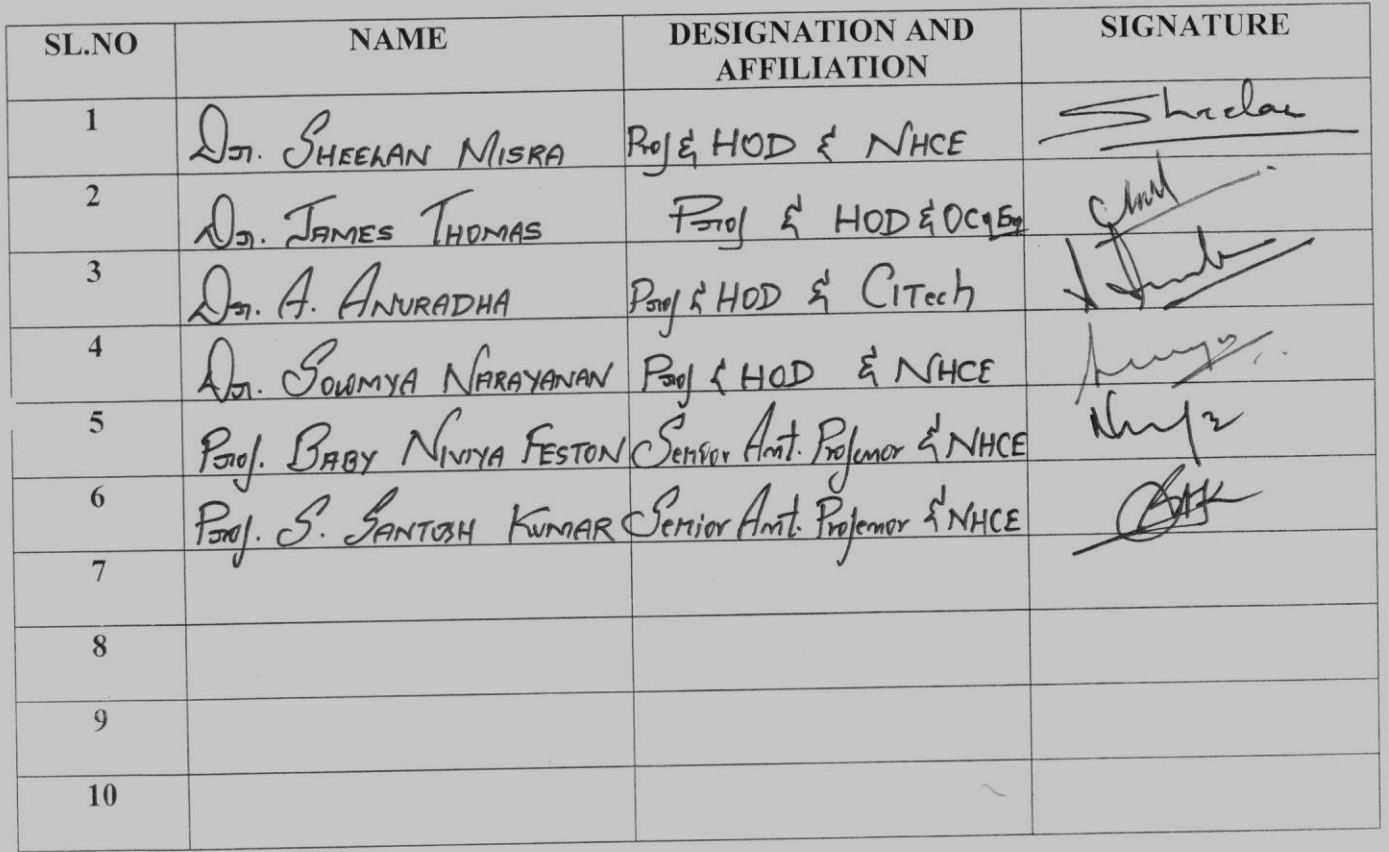 SL.NO NAME DESIGNATION AND AFFILIATION SIGNATURE
1 Dr. SHEELAN MISRA Prof & HOD & NHCE Sheelan
2 Dr. JAMES THOMAS Prof & HOD &
3 Dr. A. ANURADHA Prof & HOD & CITech
4 Dr. SOWMYA NARAYANAN Prof & HOD & NHCE
5 Prof. BABY NIVIYA FESTON Senior Asst. Professor & NHCE
6 Prof. S. SANTOSH KUMAR Senior Asst. Professor & NHCE
7
8
9
10